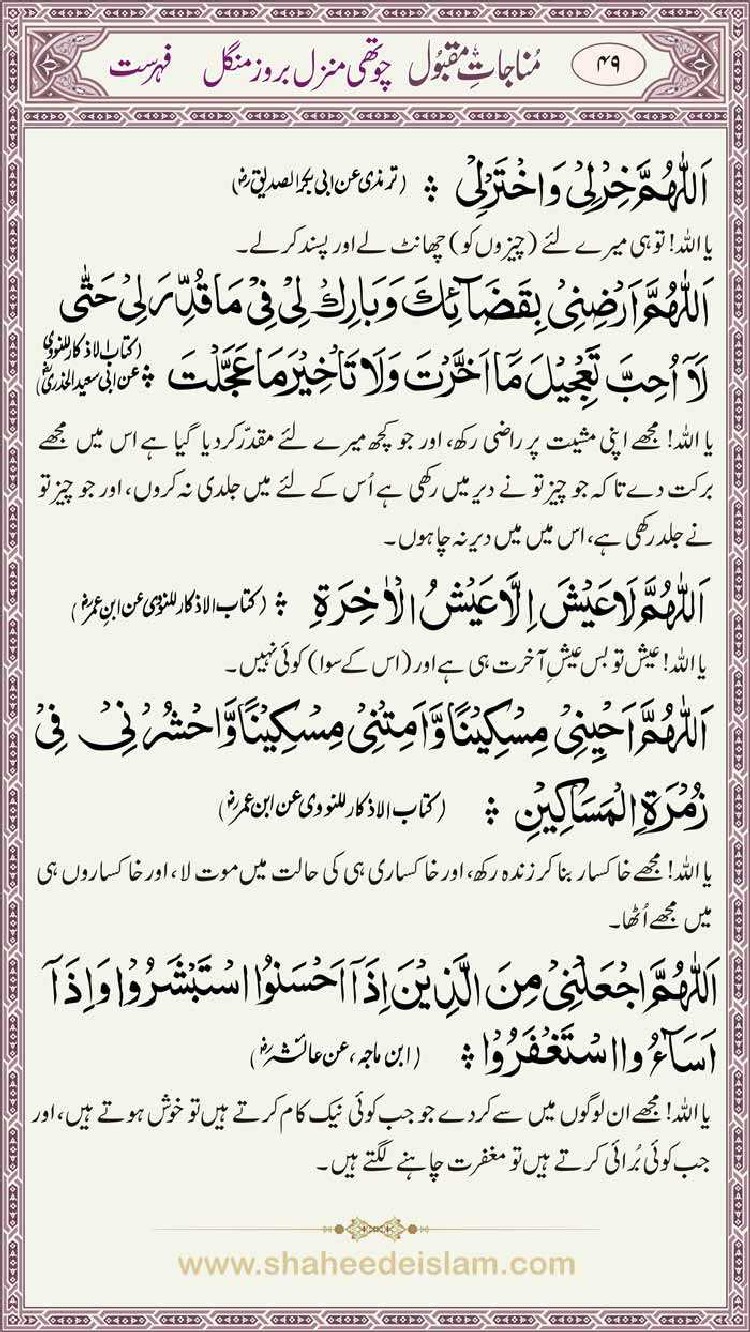 ۴۹ مُناجاتِ مقبُول چوتھی منزل بروز منگل فہرست
اَللّٰهُمَّ خِرْلِیْ وَاخْتَرْلِیْ ؞ (ترمذی عن ابی بکر الصدیقؓ)
یا اللہ! تو ہی میرے لئے (چیزوں کو) چھانٹ لے اور پسند کر لے۔
اَللّٰهُمَّ اَرْضِنِیْ بِقَضَآئِكَ وَبَارِكْ لِیْ فِیْ مَا قُدِّرَ لِیْ حَتّٰی
لَآ اُحِبَّ تَعْجِیْلَ مَآ اَخَّرْتَ وَلَا تَاْخِیْرَ مَا عَجَّلْتَ ؞ (کتاب الاذکار للنووی عن ابی سعید الخدریؓ)
یا اللہ! مجھے اپنی مشیت پر راضی رکھ، اور جو کچھ میرے لئے مقدّر کر دیا گیا ہے اس میں مجھے
برکت دے تاکہ جو چیز تو نے دیر میں رکھی ہے اُس کے لئے میں جلدی نہ کروں، اور جو چیز تو
نے جلد رکھی ہے، اس میں میں دیر نہ چاہوں۔
اَللّٰهُمَّ لَا عَیْشَ اِلَّا عَیْشُ الْاٰخِرَةِ ؞ (کتاب الاذکار للنوویؒ عن ابنِ عمرؓ)
یا اللہ! عیش تو بس عیشِ آخرت ہی ہے اور (اس کے سوا) کوئی نہیں۔
اَللّٰهُمَّ اَحْیِنِیْ مِسْكِیْنًا وَّاَمِتْنِیْ مِسْكِیْنًا وَّاحْشُرْنِیْ فِیْ
زُمْرَةِ الْمَسَاكِیْنِ ؞ (کتاب الاذکار للنووی عن ابن عمرؓ)
یا اللہ! مجھے خاکسار بنا کر زندہ رکھ، اور خاکساری ہی کی حالت میں موت لا، اور خاکساروں ہی
میں مجھے اُٹھا۔
اَللّٰهُمَّ اجْعَلْنِیْ مِنَ الَّذِیْنَ اِذَآ اَحْسَنُوا اسْتَبْشَرُوْا وَاِذَآ
اَسَآءُوا اسْتَغْفَرُوْا ؞ (ابن ماجہ، عن عائشہؓ)
یا اللہ! مجھے ان لوگوں میں سے کر دے جو جب کوئی نیک کام کرتے ہیں تو خوش ہوتے ہیں، اور
جب کوئی بُرائی کرتے ہیں تو مغفرت چاہنے لگتے ہیں۔
www.shaheedeislam.com